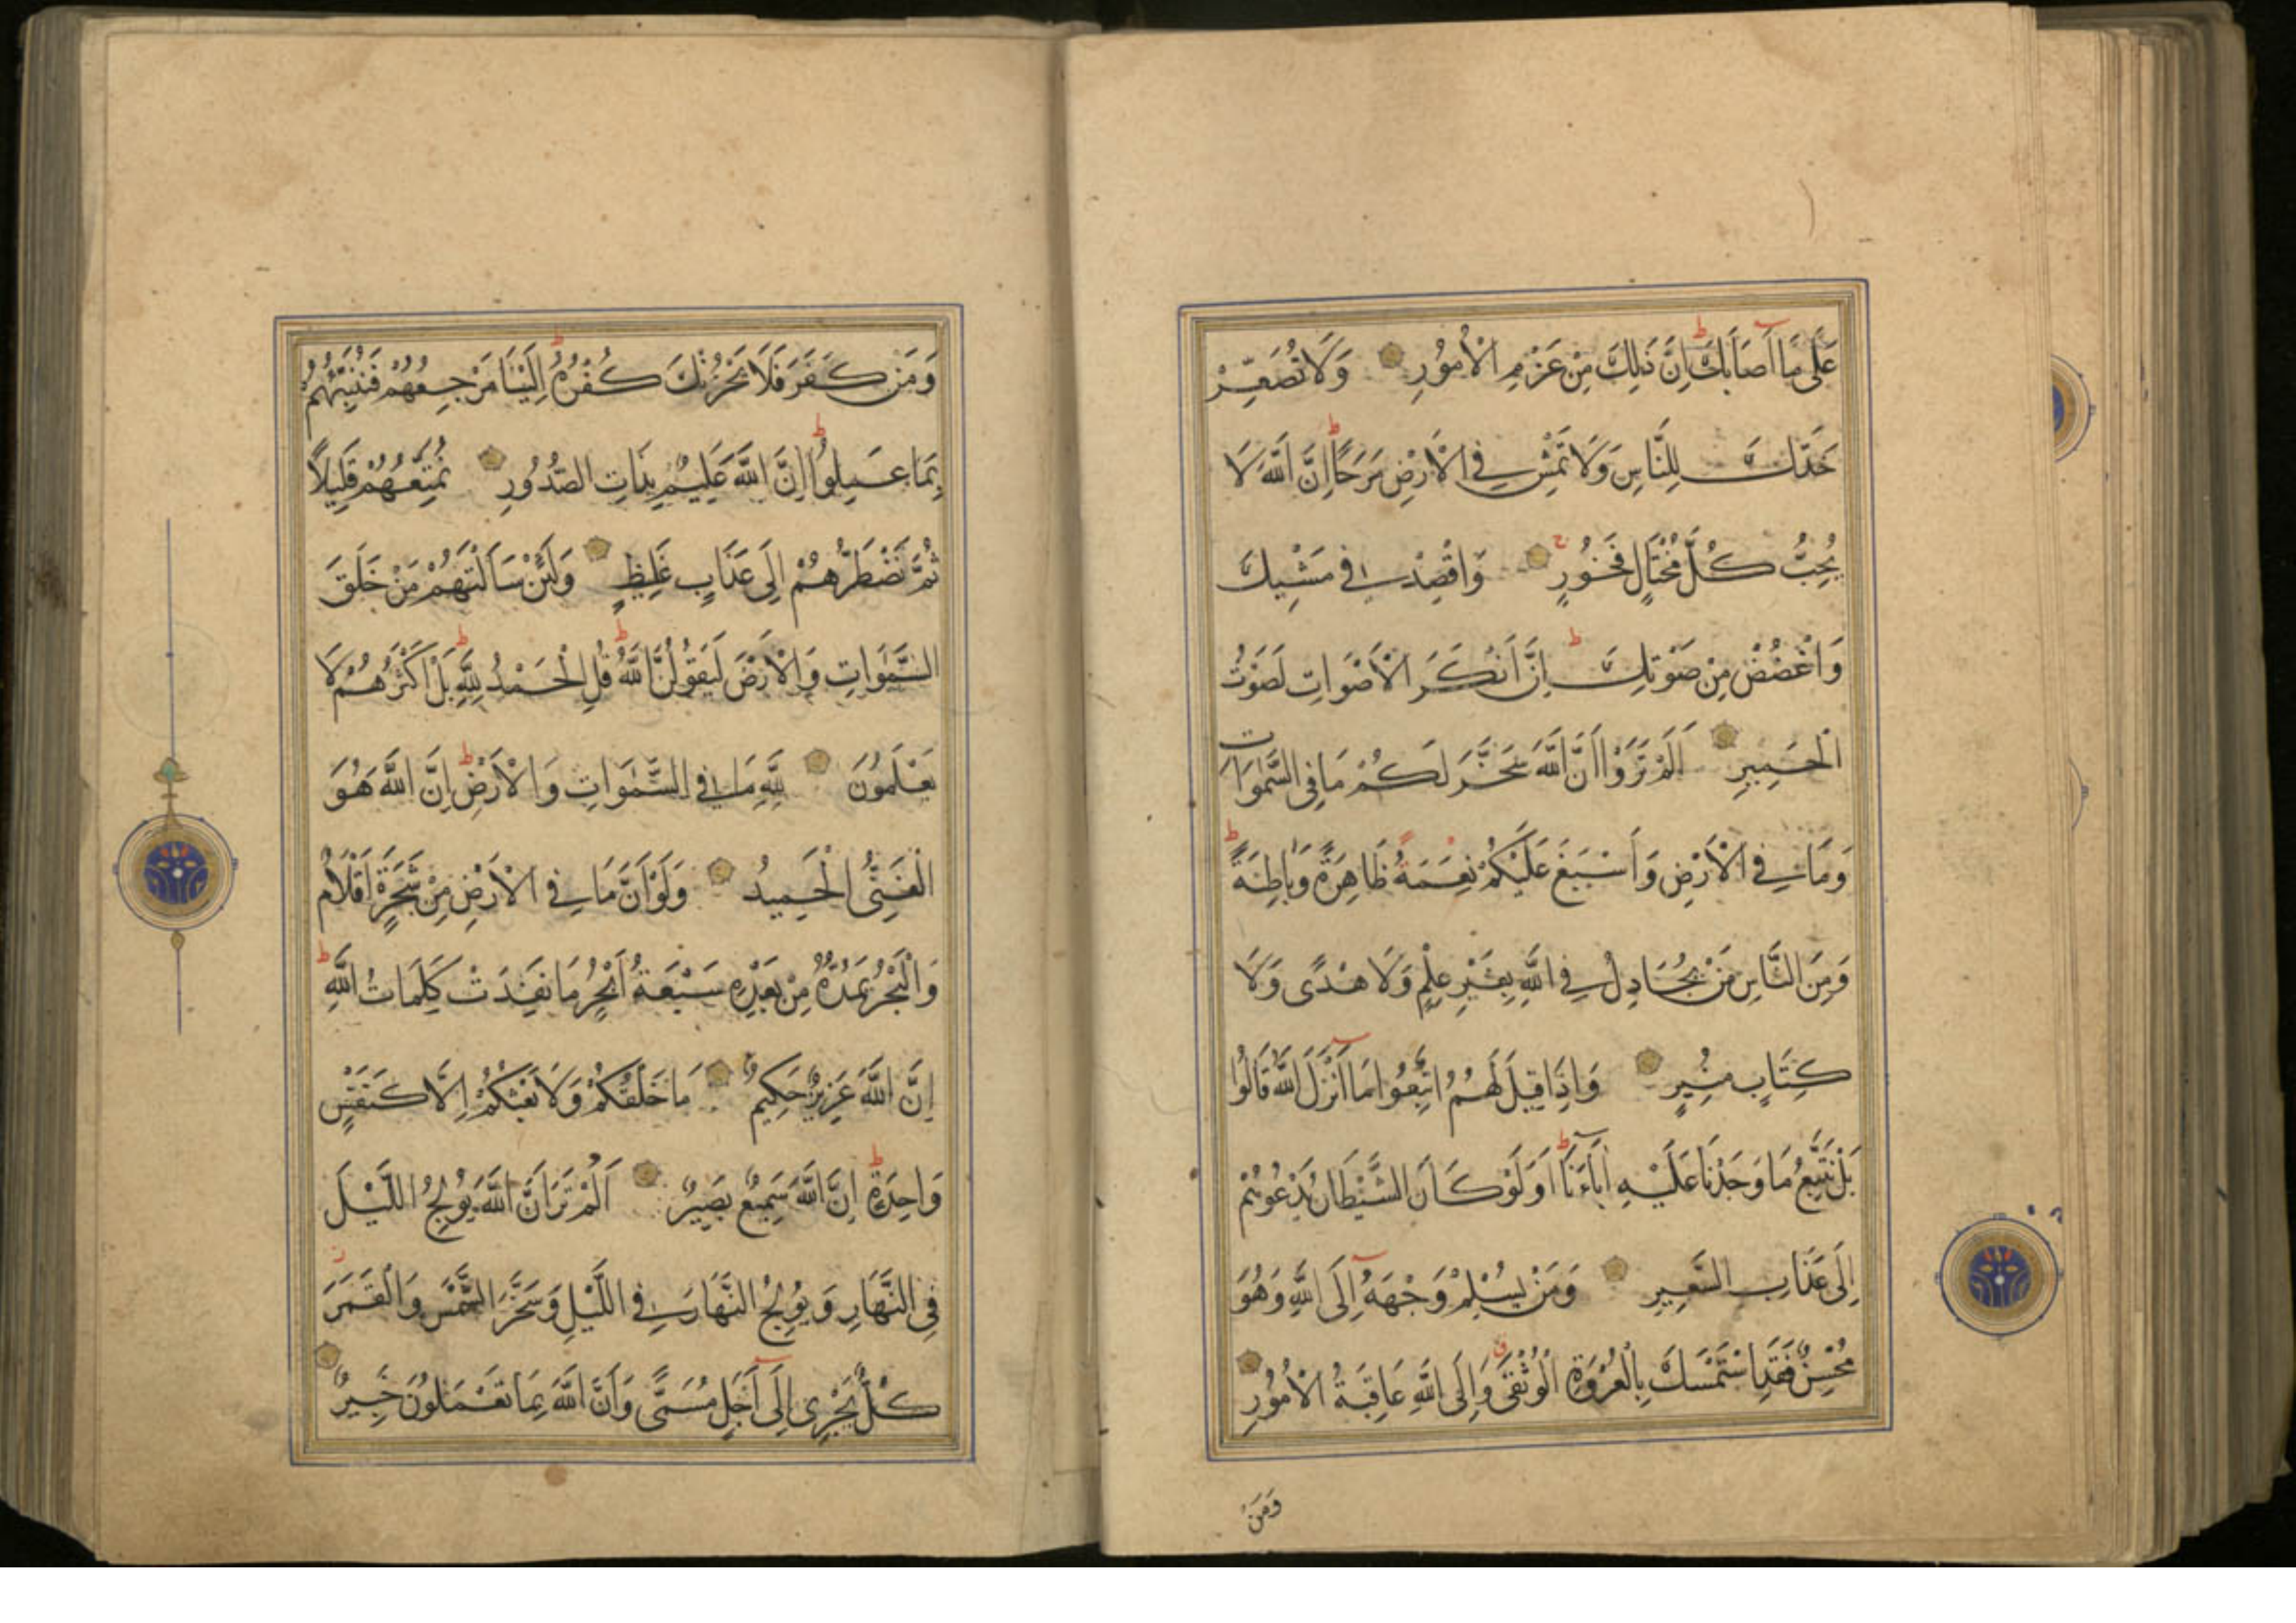 عَلَى مَا اَصَابَكَ اِنَّ ذَلِكَ مِنْ عَزْمِ الْاُمُورِ وَلَا تُصَعِّرْ
خَدَّكَ لِلنَّاسِ وَلَا تَمْشِ فِي الْاَرْضِ مَرَحًا اِنَّ اللَّهَ لَا
يُحِبُّ كُلَّ مُخْتَالٍ فَخُورٍ وَاقْصِدْ فِي مَشْيِكَ
وَاغْضُضْ مِنْ صَوْتِكَ اِنَّ اَنْكَرَ الْاَصْوَاتِ لَصَوْتُ
الْحَمِيرِ اَلَمْ تَرَوْا اَنَّ اللَّهَ سَخَّرَ لَكُمْ مَا فِي السَّمٰوَاتِ
وَمَا فِي الْاَرْضِ وَاَسْبَغَ عَلَيْكُمْ نِعَمَهُ ظَاهِرَةً وَبَاطِنَةً
وَمِنَ النَّاسِ مَنْ يُجَادِلُ فِي اللَّهِ بِغَيْرِ عِلْمٍ وَلَا هُدًى وَلَا
كِتَابٍ مُنِيرٍ وَاِذَا قِيلَ لَهُمُ اتَّبِعُوا مَا اَنْزَلَ اللَّهُ قَالُوا
بَلْ نَتَّبِعُ مَا وَجَدْنَا عَلَيْهِ اٰبَاءَنَا اَوَلَوْ كَانَ الشَّيْطَانُ يَدْعُوهُمْ
اِلَى عَذَابِ السَّعِيرِ وَمَنْ يُسْلِمْ وَجْهَهُ اِلَى اللَّهِ وَهُوَ
مُحْسِنٌ فَقَدِ اسْتَمْسَكَ بِالْعُرْوَةِ الْوُثْقَى وَاِلَى اللَّهِ عَاقِبَةُ الْاُمُورِ
وَمَنْ
وَمَنْ كَفَرَ فَلَا يَحْزُنْكَ كُفْرُهُ اِلَيْنَا مَرْجِعُهُمْ فَنُنَبِّئُهُمْ
بِمَا عَمِلُوا اِنَّ اللَّهَ عَلِيمٌ بِذَاتِ الصُّدُورِ نُمَتِّعُهُمْ قَلِيلًا
ثُمَّ نَضْطَرُّهُمْ اِلَى عَذَابٍ غَلِيظٍ وَلَئِنْ سَاَلْتَهُمْ مَنْ خَلَقَ
السَّمٰوَاتِ وَالْاَرْضَ لَيَقُولُنَّ اللَّهُ قُلِ الْحَمْدُ لِلَّهِ بَلْ اَكْثَرُهُمْ لَا
يَعْلَمُونَ لِلَّهِ مَا فِي السَّمٰوَاتِ وَالْاَرْضِ اِنَّ اللَّهَ هُوَ
الْغَنِيُّ الْحَمِيدُ وَلَوْ اَنَّ مَا فِي الْاَرْضِ مِنْ شَجَرَةٍ اَقْلَامٌ
وَالْبَحْرُ يَمُدُّهُ مِنْ بَعْدِهِ سَبْعَةُ اَبْحُرٍ مَا نَفِدَتْ كَلِمَاتُ اللَّهِ
اِنَّ اللَّهَ عَزِيزٌ حَكِيمٌ مَا خَلْقُكُمْ وَلَا بَعْثُكُمْ اِلَّا كَنَفْسٍ
وَاحِدَةٍ اِنَّ اللَّهَ سَمِيعٌ بَصِيرٌ اَلَمْ تَرَ اَنَّ اللَّهَ يُولِجُ اللَّيْلَ
فِي النَّهَارِ وَيُولِجُ النَّهَارَ فِي اللَّيْلِ وَسَخَّرَ الشَّمْسَ وَالْقَمَرَ
كُلٌّ يَجْرِي اِلَى اَجَلٍ مُسَمًّى وَاَنَّ اللَّهَ بِمَا تَعْمَلُونَ خَبِيرٌ